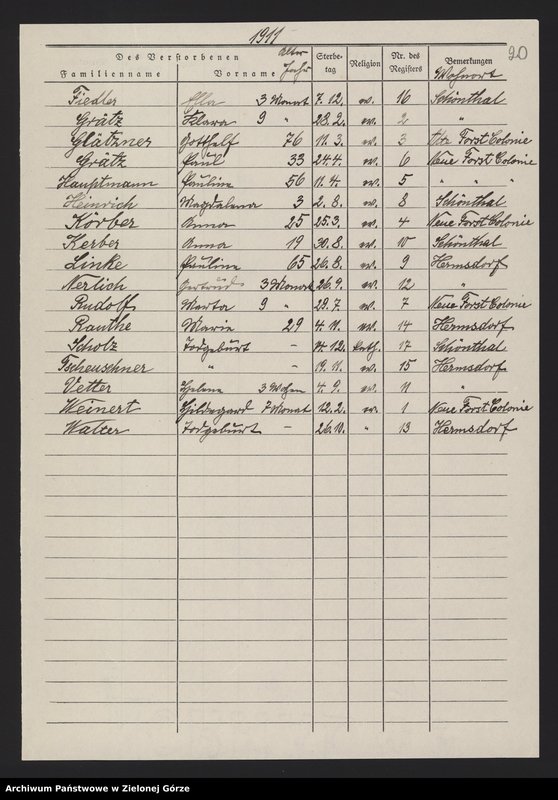 1911
20
Des Verstorbenen Alter Sterbe- Religion Nr. des Bemerkungen
Familienname Vorname Jahre tag Registers Wohnort
Fiedler Ella 3 Monat 7.12. ev. 16 Schönthal
Grätz Klara 9 " 23.2. ev. 2 "
Glätzner Gotthelf 76 11.3. ev. 3 Forst Colonie
Grätz Paul 33 24.4. ev. 6 Neue Forst Colonie
Hauptmann Pauline 56 11.4. ev. 5 " " "
Heinrich Magdalena 3 2.8. ev. 8 Schönthal
Körber Anna 25 25.3. ev. 4 Neue Forst Colonie
Kerber Anna 19 30.8. ev. 10 Schönthal
Linke Pauline 65 26.8. ev. 9 Hermsdorf
Nerlich Gertrud 3 Monat 26.9. ev. 12 "
Rudolf Marta 9 " 29.7. ev. 7 Neue Forst Colonie
Rauthe Marie 29 4.11. ev. 14 Hermsdorf
Scholz Todgeburt – 14.12. kath. 17 Schönthal
Tscheuschner " – 19.11. ev. 15 Hermsdorf
Vetter Helene 3 Wochen 4.9. ev. 11 "
Weinert Hildegard 7 Monat 12.2. ev. 1 Neue Forst Colonie
Walter Todgeburt – 26.10. " 13 Hermsdorf
Archiwum Państwowe w Zielonej Górze